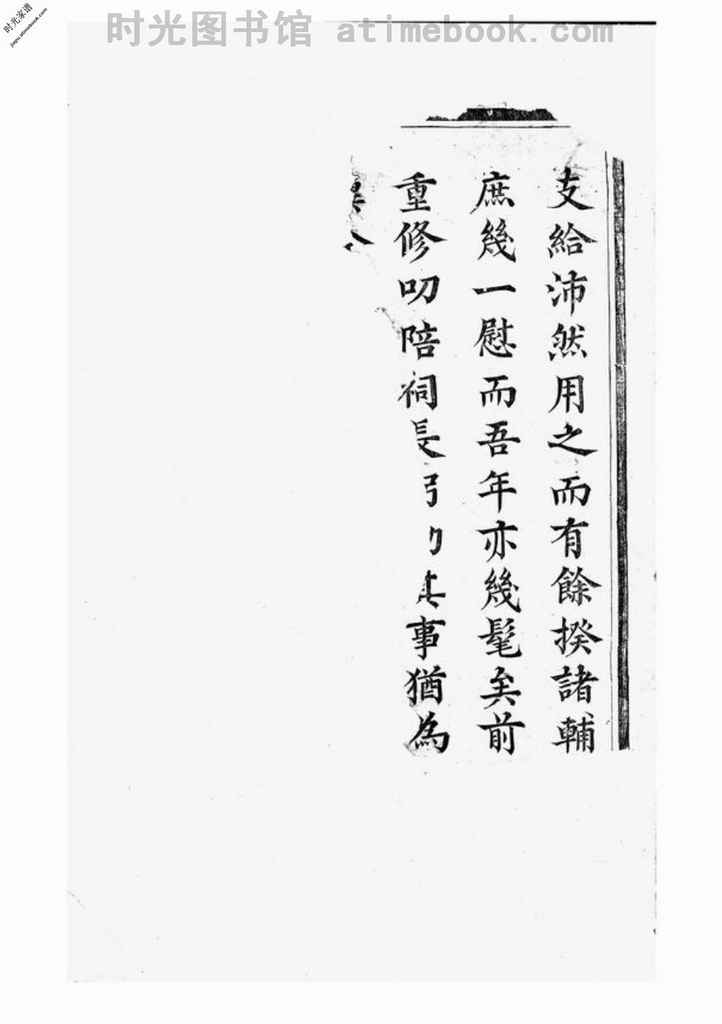 时光图书馆 atimebook.com
时光家谱
jiapu.atimebook.com
支給沛然用之而有餘揆諸輔
庶幾一慰而吾年亦幾髦矣前
重修叨陪祠長
事猶為